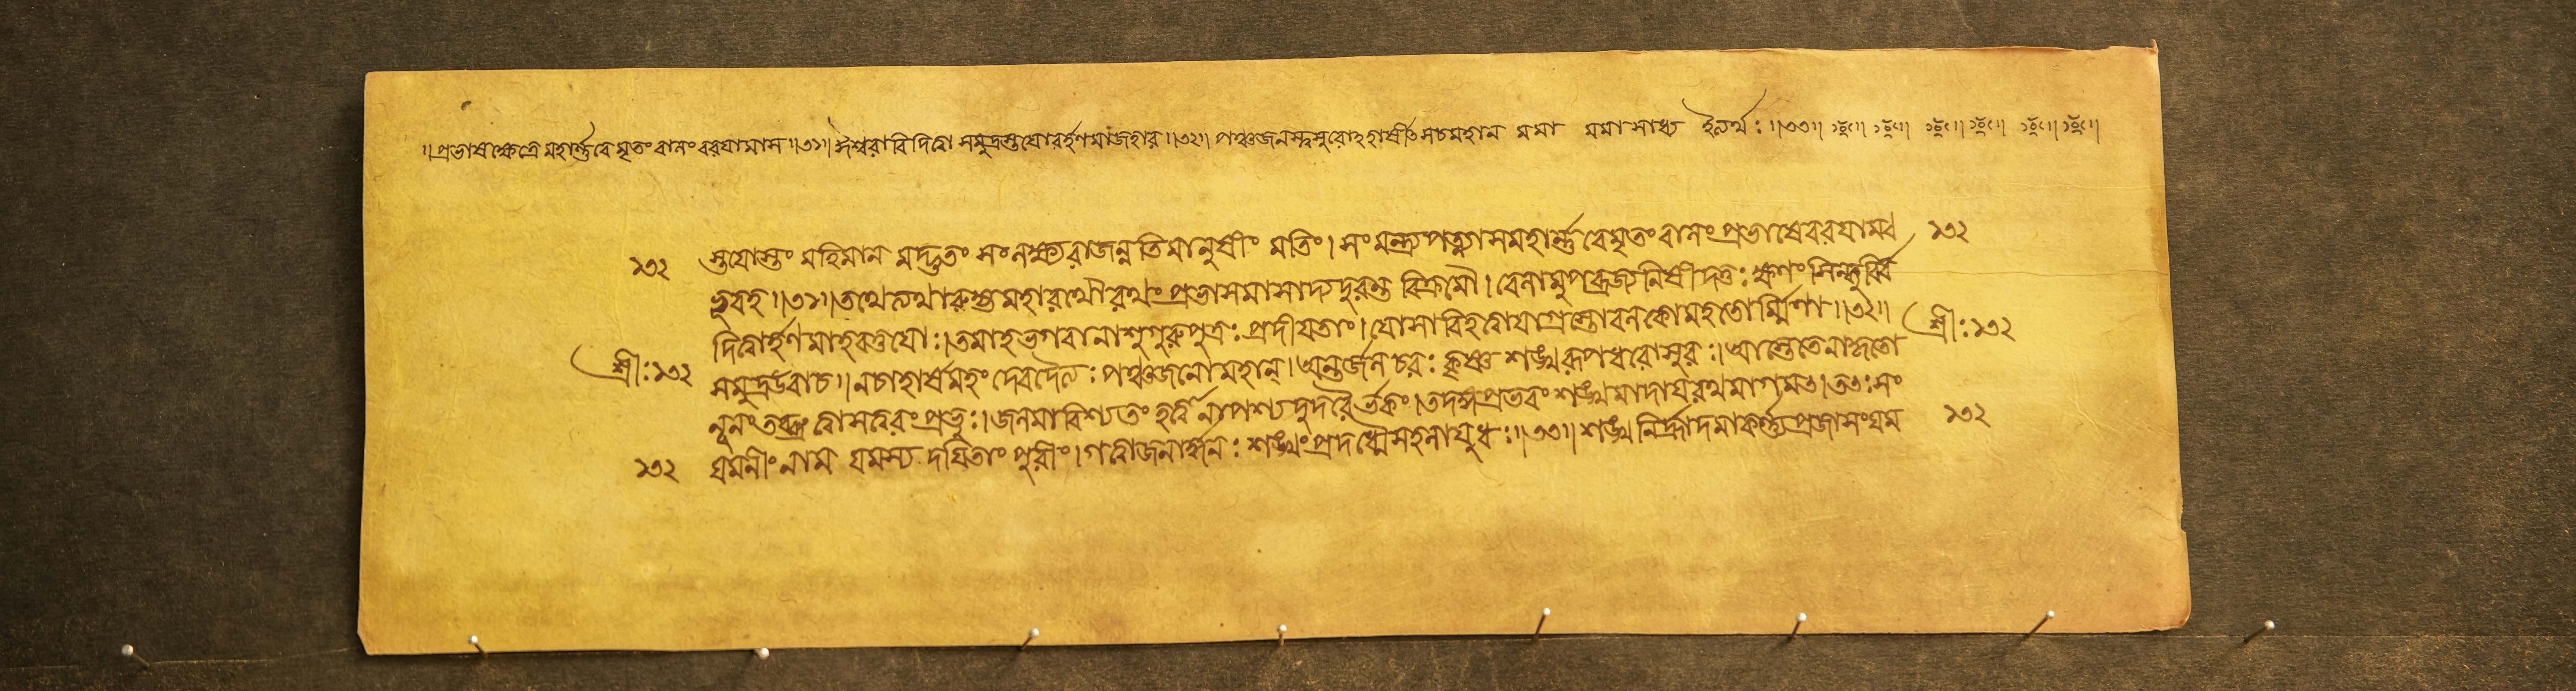 ॥প্রভাষক্ষেত্রে মহার্ণ্ণবে মৃতং বালং বরযামাস॥৩১॥ ঈশ্বরাবিদিত্বা সমুদ্রস্তযোরর্হণমাজহার॥৩২॥ পঞ্চজনস্ত্বসুরোঽহার্ষীৎ সচমহান
১৩২ স্তযোস্তং মহিমান মদ্ভুতং সংলক্ষ্যরাজন্নতিমানুষীং মতিং।সংমন্ত্র্যপত্ন্যাসমহার্ণ্ণবেমৃতংবালংপ্রভাষেবরযামব ১৩২
ভূবহ॥৩১॥তথেত্যথারুহ্যমহারথৌরথংপ্রভাসমাসাদ্যদুরন্ত বিক্রমৌ।বেলামুপব্রজ্যনিষীদতুঃক্ষণংসিন্ধুর্ব্বি
দিত্বার্হণমাহরত্তযোঃ।তমাহভগবানাশুগুরুপুত্রঃপ্রদীযতাং।যোসাবিহত্বযাগ্রস্তোবালকোমহতোর্ম্মিণা॥৩২॥ শ্রীঃ১৩২
শ্রীঃ১৩২ সমুদ্রউবাচ॥নচাহার্ষমহং দেবদৈত্যঃপঞ্চজনোমহান্।অন্তর্জলচরঃকৃষ্ণ শঙ্খরূপধরোসুরঃ।আস্তেতেনাহৃতো
নূনংতচ্ছ্রুত্বাসত্বরংপ্রভুঃ।জলমাবিশ্যতংহত্বানাপশ্যদুদরেঽর্ভকং।তদঙ্গপ্রভবংশঙ্খমাদাযরথমাগমৎ।ততঃসং
১৩২ যমনীংনাম যমস্য দযিতাং পুরীং।গত্বাজনার্দ্দনঃশঙ্খংপ্রদধ্মৌসহলাযুধঃ॥৩৩॥শঙ্খনির্হ্রাদমাকর্ণ্যপ্রজাসংযম ১৩২